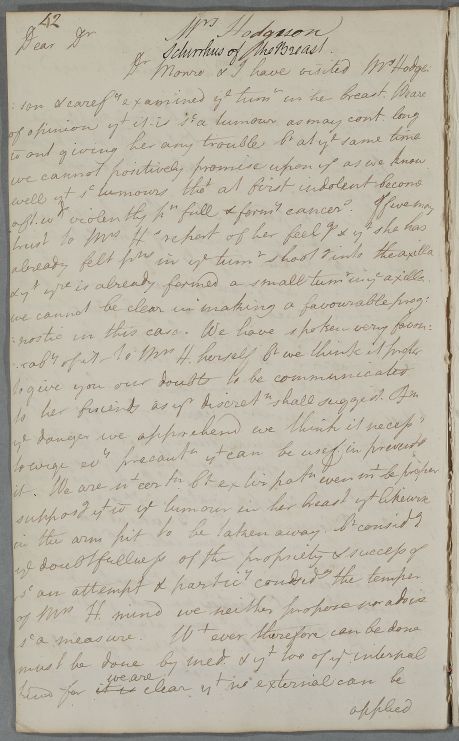 42
Mrs Hodgson
Schirrhus of the Breast.
Dear Dr
Dr Monro & I have visited Mrs Hodg:
:son & carefy examined ye tumr in her breast. We are
of opinion yt it is sc a tumour as may cont long
witht giving her any trouble bt at ye same time
we cannot positively promise upon ys as we know
well yt sc tumours tho' at first indolent become
aftwd violently pnfull & formg cancers. If we may
trust to Mrs H's report of her feelgs & yt she has
already felt pns in ye tumr shootg into the axilla
& yt yre is already formed a small tumr in ye axilla
we cannot be clear in making a favourable prog:
:nostic in this case. We have spoken very favou:
:raby of it to Mrs H. herself bt we think it proper
to give you our doubts to be communicated
to her friends as yr discretn shall suggest. From
ye danger we apprehend we think it necessy
to urge evy precautn yt can be used in preventg
it. We are nt certn bt extirpatn even mt be proper
supposg yt to ye tumour in her breast yt likewise
in the arm pit to be taken away. bt considg
ye doubtfullness of the propriety & success of
sc an attempt & particy considg the temper
of Mrs H. mind we neither propose nor advise
sc a measure. Wt ever therefore can be done
must be done by med. & yt too of ye internal
kind for we are clear yt no external can be
applied